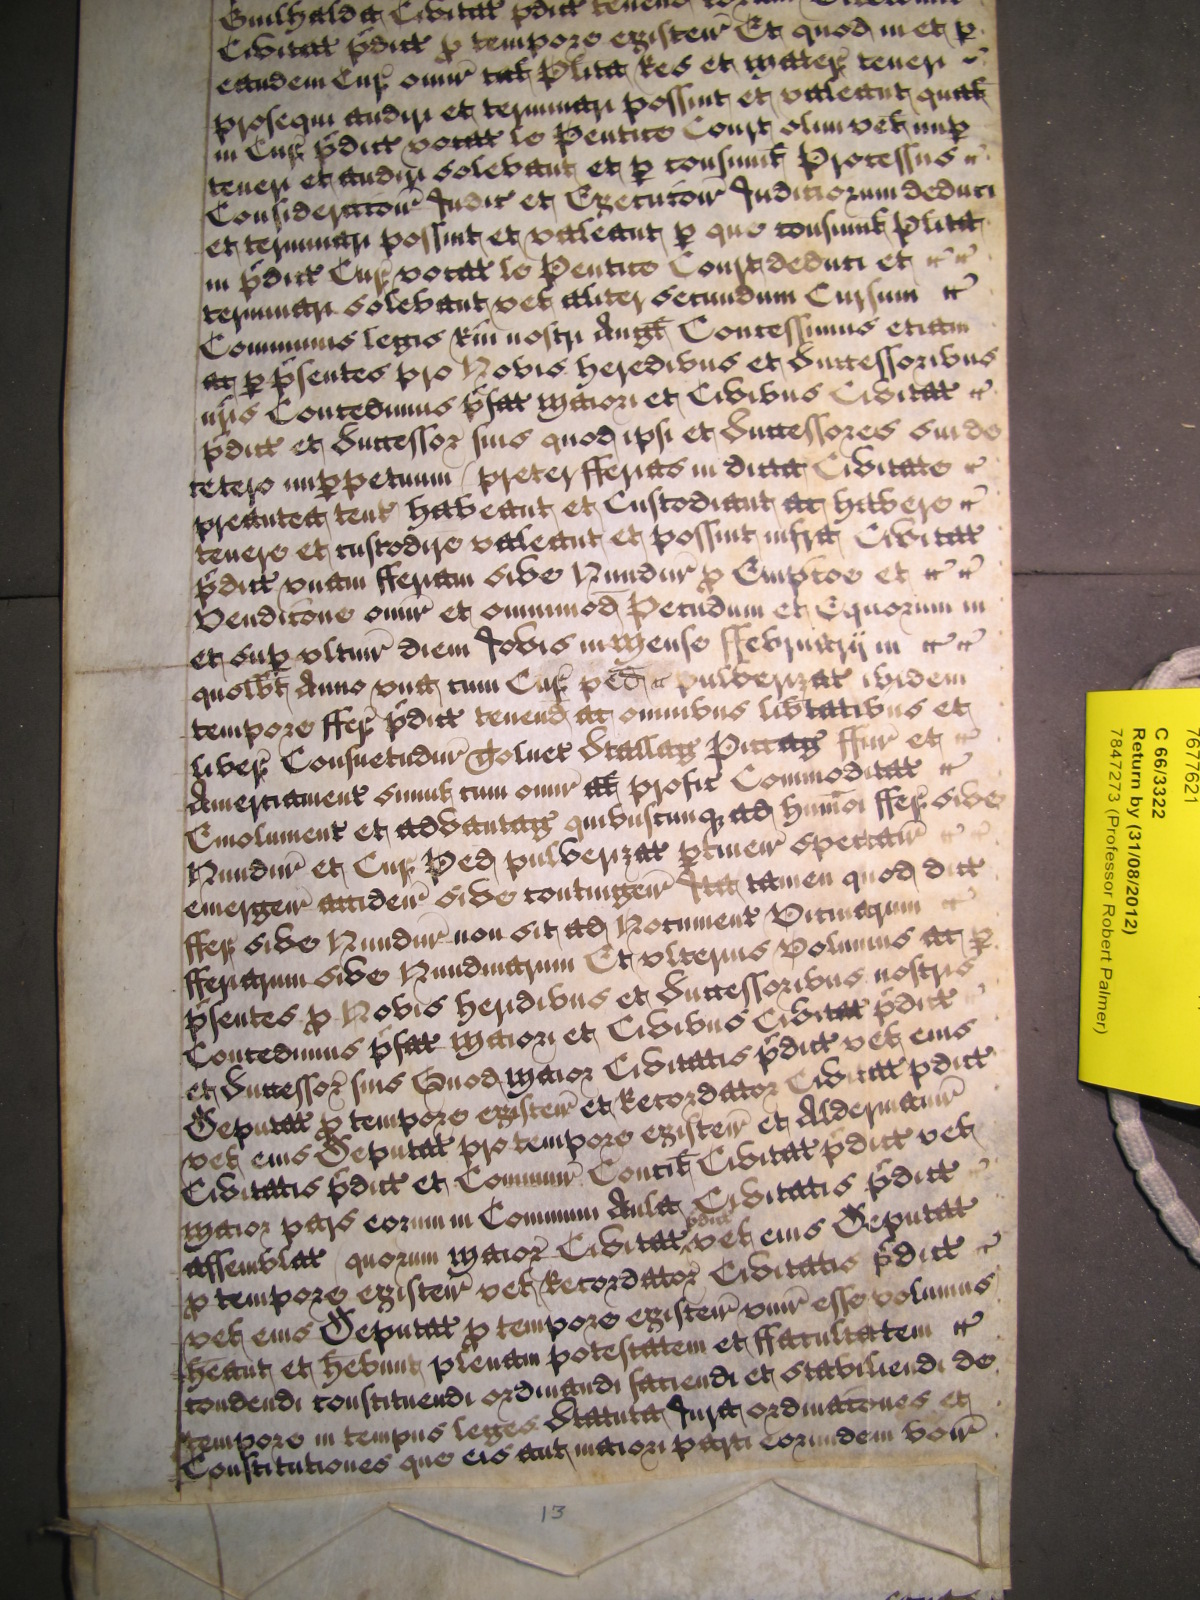 Guilhalda Civitat p̄dict tenend coram
Civitat p̄dict p tempore existeñ Et quod in et p
eandem Cur̄ omñ tal Plita Res et mater̄ teneri
prosequi audiri et terminari possint et valeant qual
in Cur̄ p̄dict vocat le Pentice Court olim vel nup
teneri et audiri solebant et p consimil Processus
Consideracoñ Judic et Executoñ Judiciorum deduci
et terminari possint et valeant p que consimil plita
in p̄dict Cur̄ vocat le Pentice Court deduci et
terminari solebant vel aliter secundum Cursum
Communis legis Rm̄ nostri Angl Concessimus etiam
ac p p̄sentes pro Nobis heredibus et Successoribus
nr̄is Concedimus p̄fat Maiori et Civibus Civitat
p̄dict et Successor̄ suis quod ipsi et Successores sui de
cetero imppetuum preter fferias in dicta Civitate
preantea tent habeant et Custodiant ac habere
tenere et custodire valeant et possint infra Civitat
p̄dict unam fferiam sive Nundiñ p Empcoe et
Vendicōne omñ et omnimod Pecudum et Equorum in
et sup ultim̄ diem Jovis in Mense ffebruarij in
quolb̄t Anno una cum Cur̄ pēd pulverizat ibidem
tempore ffer̄ p̄dict tenend ac omnibus lib̄tatibus et
liber̄ Consuetudiñ Tolnet Stallag Piccag ffiñ et
Amerciament simul cum omñ al profic Commoditat
Emolument et advantag quibuscunq ad hm̄oi ffer̄ sive
Nundiñ et Cur̄ Ped pulverizat ptineñ spectañ
emergeñ accideñ sive contingeñ Ita tamen quod dict
ffer̄ sive Nundiñ non sit ad Nocument Vicinarum
fferiarum sive Nundinarum Et ulterius Volumus ac p
p̄sentes p Nobis heridibus et Successoribus nostris
Concedimus p̄fat Maiori et Civibus Civitat p̄dict
et Successor̄ suis Quod Maior Civitatis p̄dict vel eius
Deputat p tempore existeñ et Recordator Civitat p̄dict
vel eius Deputat pro tempore existeñ et Aldermañ
Civitatis p̄dict et Commuñ Concil Civitat p̄dict vel
Maior pars eorum in Communi Aula Civitatis p̄dict
assemblat quorum Maior̄ Civitat p̄dict vel eius Deputat
p tempore existeñ vel Recordator̄ Civitatis p̄dict
vel eius Deputat p tempore existeñ unū esse volumus
hēant et hēbunt plenam potestatem et ffacultatem
condendi constituendi ordinandi faciendi et stabiliendi de
tempore in tempus leges Statuta Jura ordinacōnes et
Constitutiones que eis aut maiori parti eorundem
13
7677621
C 66/3322
Return by (31/08/2012)
7847273 (Professor Robert Palmer)